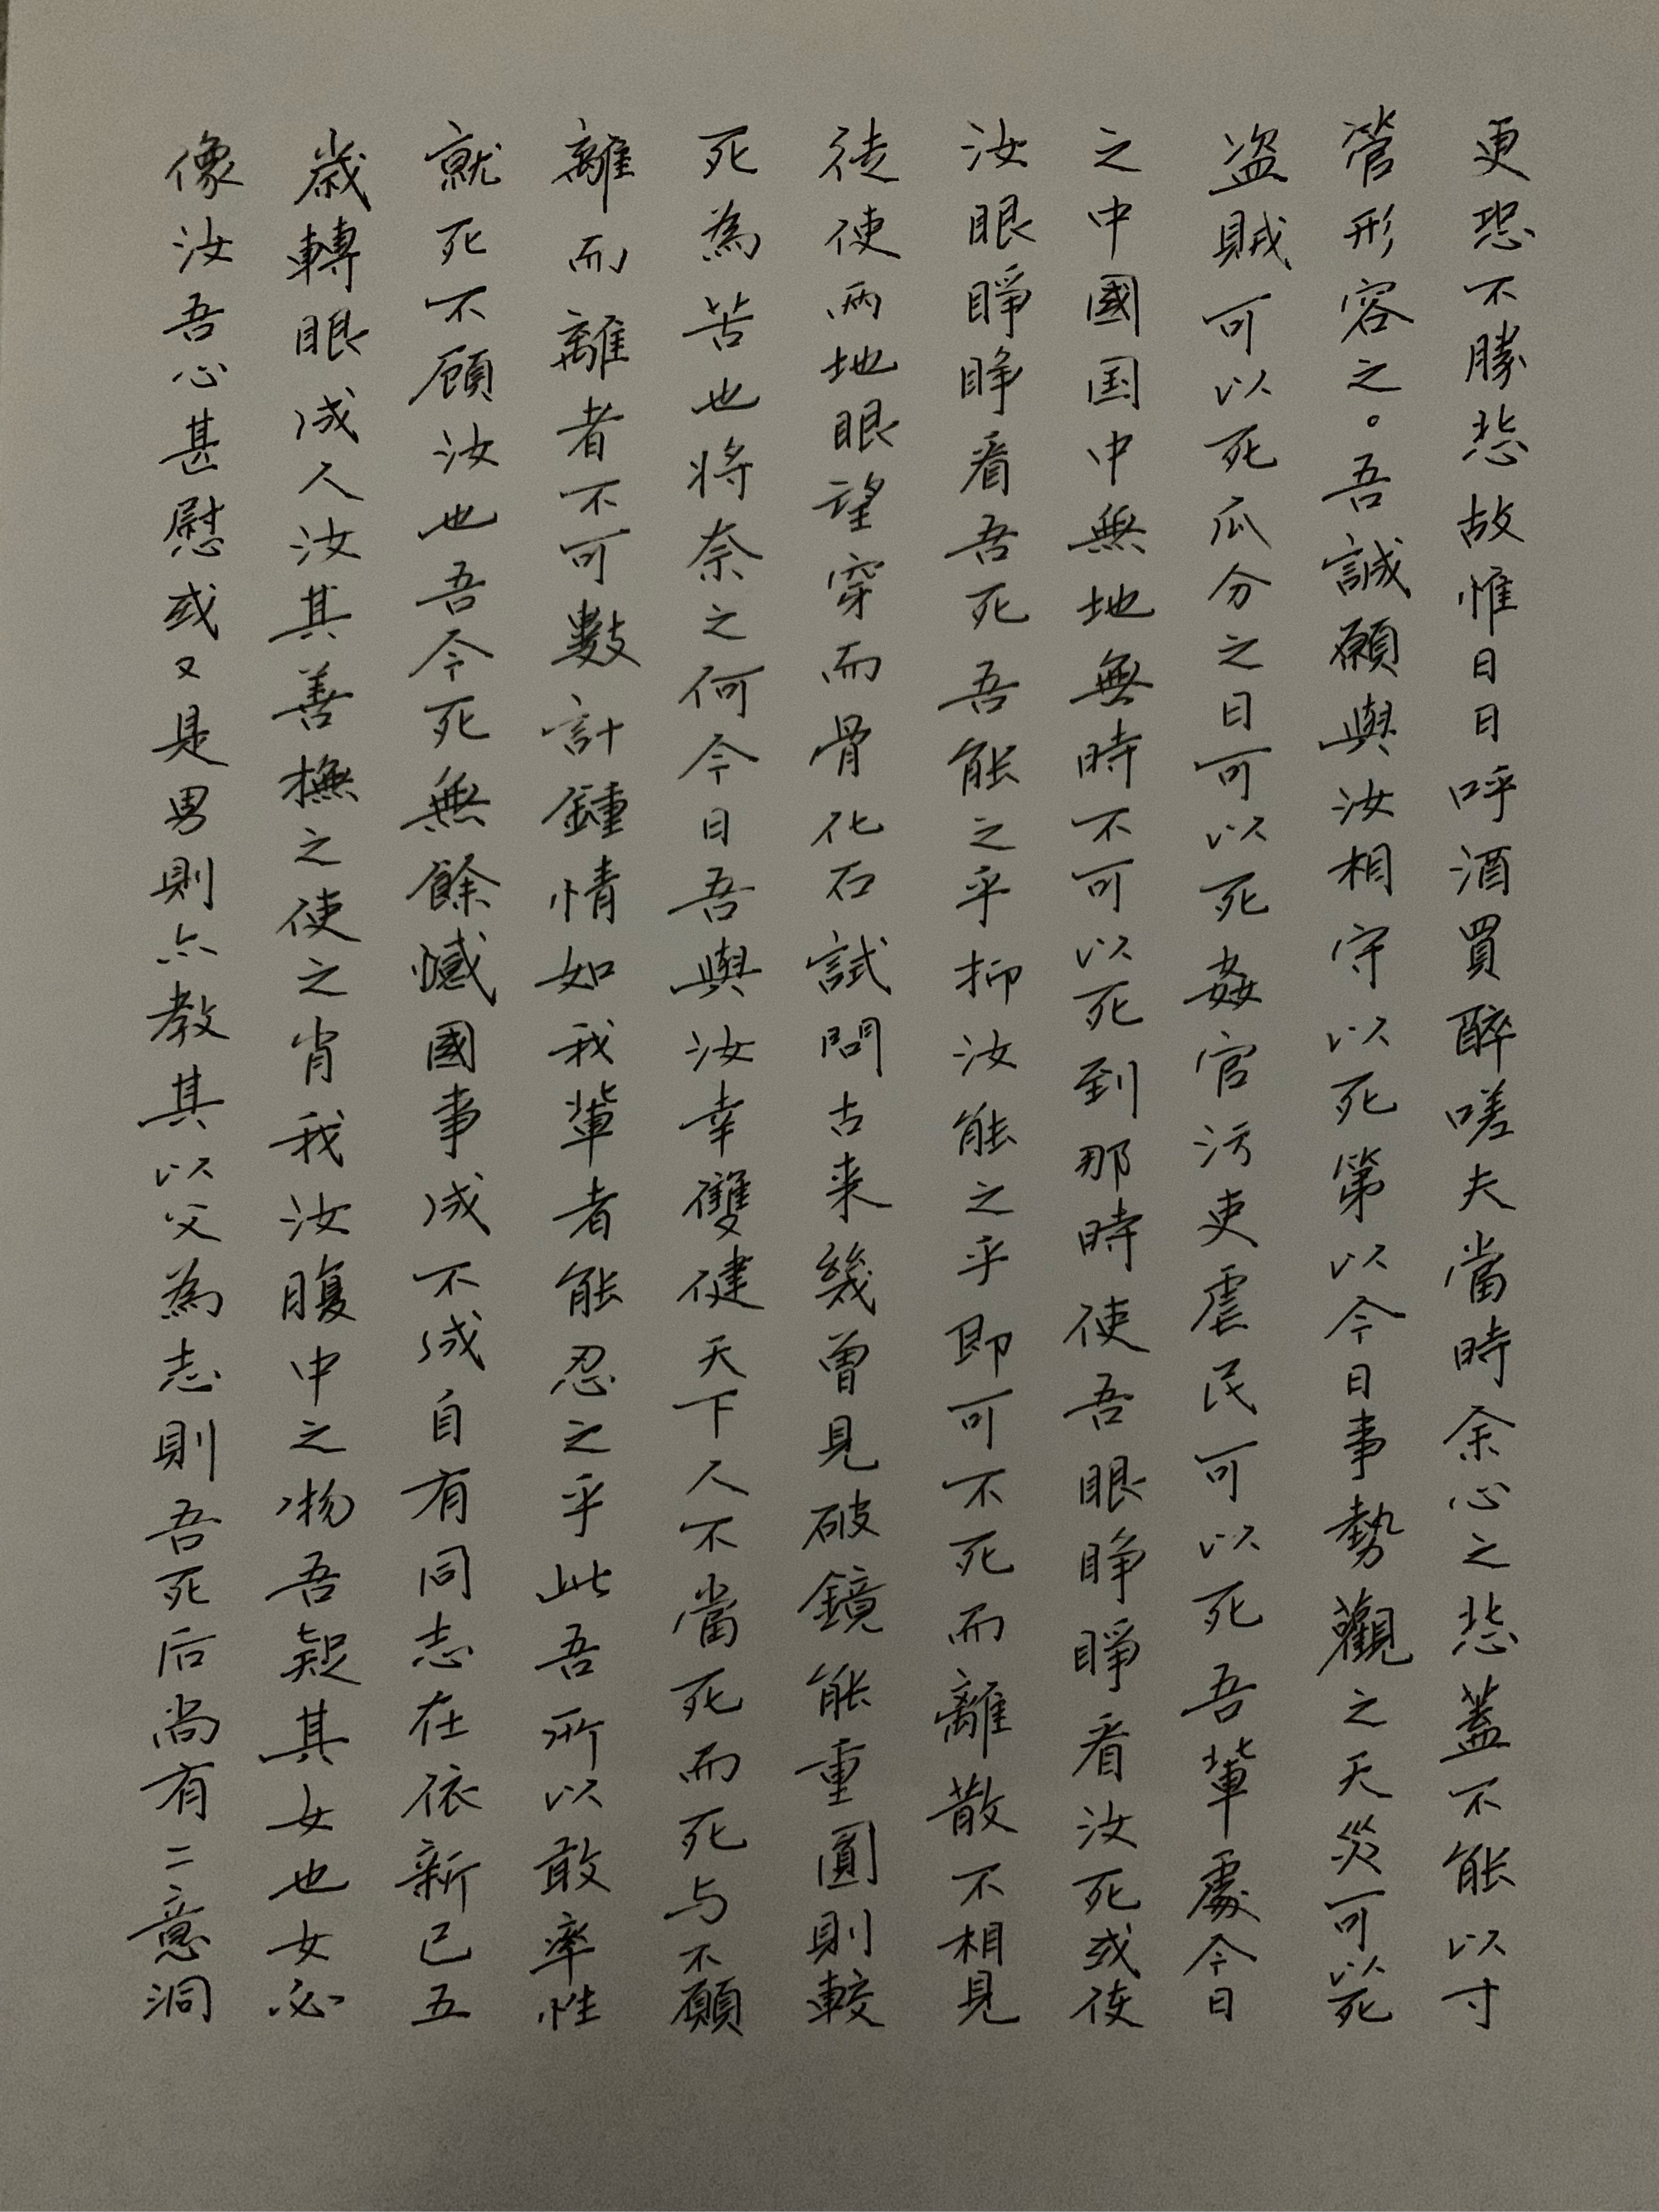 更恐不勝悲故惟日日呼酒買醉嗟夫當時余心之悲蓋不能以寸
管形容之。吾誠願與汝相守以死第以今日事勢觀之天災可以死
盗賊可以死瓜分之日可以死姦官污吏虐民可以死吾輩處今日
之中國国中無地無時不可以死到那時使吾眼睁睁看汝死或使
汝眼睁睁看吾死吾能之乎抑汝能之乎即可不死而離散不相見
徒使兩地眼望穿而骨化石試問古来幾曾見破鏡能重圓則較
死為苦也将奈之何今日吾與汝幸雙健天下人不當死而死与不願
離而離者不可數計鍾情如我輩者能忍之乎此吾所以敢率性
就死不顧汝也吾今死無餘憾國事成不成自有同志在依新已五
歲轉眼成人汝其善撫之使之肖我汝腹中之物吾疑其女也女必
像汝吾心甚慰或又是男則亦教其以父為志則吾死后尚有二意洞